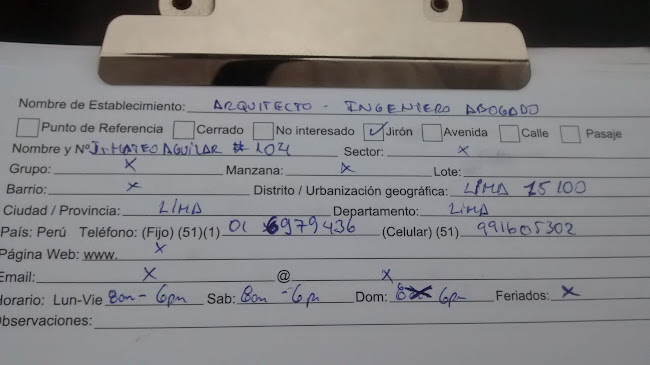 Nombre de Establecimiento: ARQUITECTO - INGENIERO ABOGADO
Punto de Referencia Cerrado No interesado Jirón Avenida Calle Pasaje
Nombre y Nº Jr. MATEO AGUILAR # 104 Sector: X
Grupo: X Manzana: X Lote:
Barrio: X Distrito / Urbanización geográfica: LIMA 15100
Ciudad / Provincia: LIMA Departamento: LIMA
País: Perú Teléfono: (Fijo) (51)(1) 01 6979436 (Celular) (51) 991605302
Página Web: www. X
Email: X @ X
Horario: Lun-Vie 8am - 6pm Sab: 8am - 6pm Dom: 6pm Feriados: X
Observaciones: